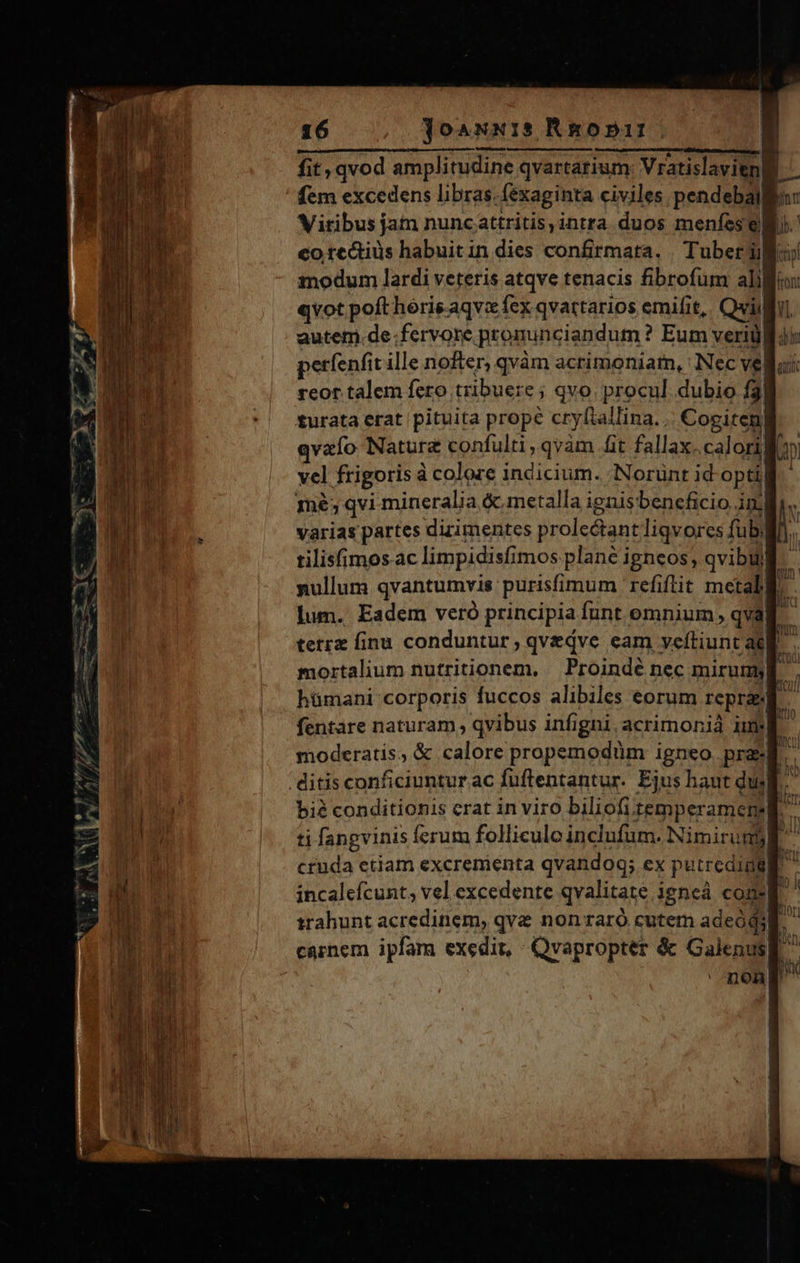 16 JOANNIS RHODII
fit, qvod amplitudine qvartarium Vratislavien
ſem excedens libras ſexaginta civiles pendebat
Viribus jam nunc attritis, intra duos menſes
eo rectiùs habuit in dies confirmata. Tuber
modum lardi veteris atqve tenacis fibroſum
qvot poſt horis aqvæ ſex qvartarios emiſit,
autem de fervore pronunciandum? Eum
perſenſit ille noſter, qvàm acrimoniam, Nec
reor talem ſero tribuere; qvo procul dubio
turata erat pituita propè cryſtallina. Cogiten
qvæſo Naturæ conſulti, qvàm ſit fallax calori
vel frigoris à colore indicium. Norunt id opti
mè, qvi mineralia & metalla ignis beneficio in
varias partes dirimentes prolectant liqvores ſub
tilisſimos ac limpidisſimos planè igneos, qvibu
nullum qvantumvis purisſimum reſiſtit metal
lum. Eadem verò principia ſunt omnium, qvæ
terræ ſinu conduntur, qvæqve eam veſtiunt ad
mortalium nutritionem. Proindè nec mirum,
hümani corporis ſuccos alibiles eorum repræ-
ſentare naturam, qvibus inſigni acrimoniâ im-
moderatis, & calore propemodùm igneo præ-
ditis conficiuntur ac ſuſtentantur. Ejus haut du-
biè conditionis erat in viro bilioſi temperamen-
ti ſangvinis ſerum folliculo incluſum. Nimirum,
cruda etiam excrementa qvandoq; ex putredine
incaleſcunt, vel excedente qvalitate igneâ con-
trahunt acredinem, qvæ non rarò cutem adeòq;
carnem ipſam exedit, Qvapropter & Galenus
non